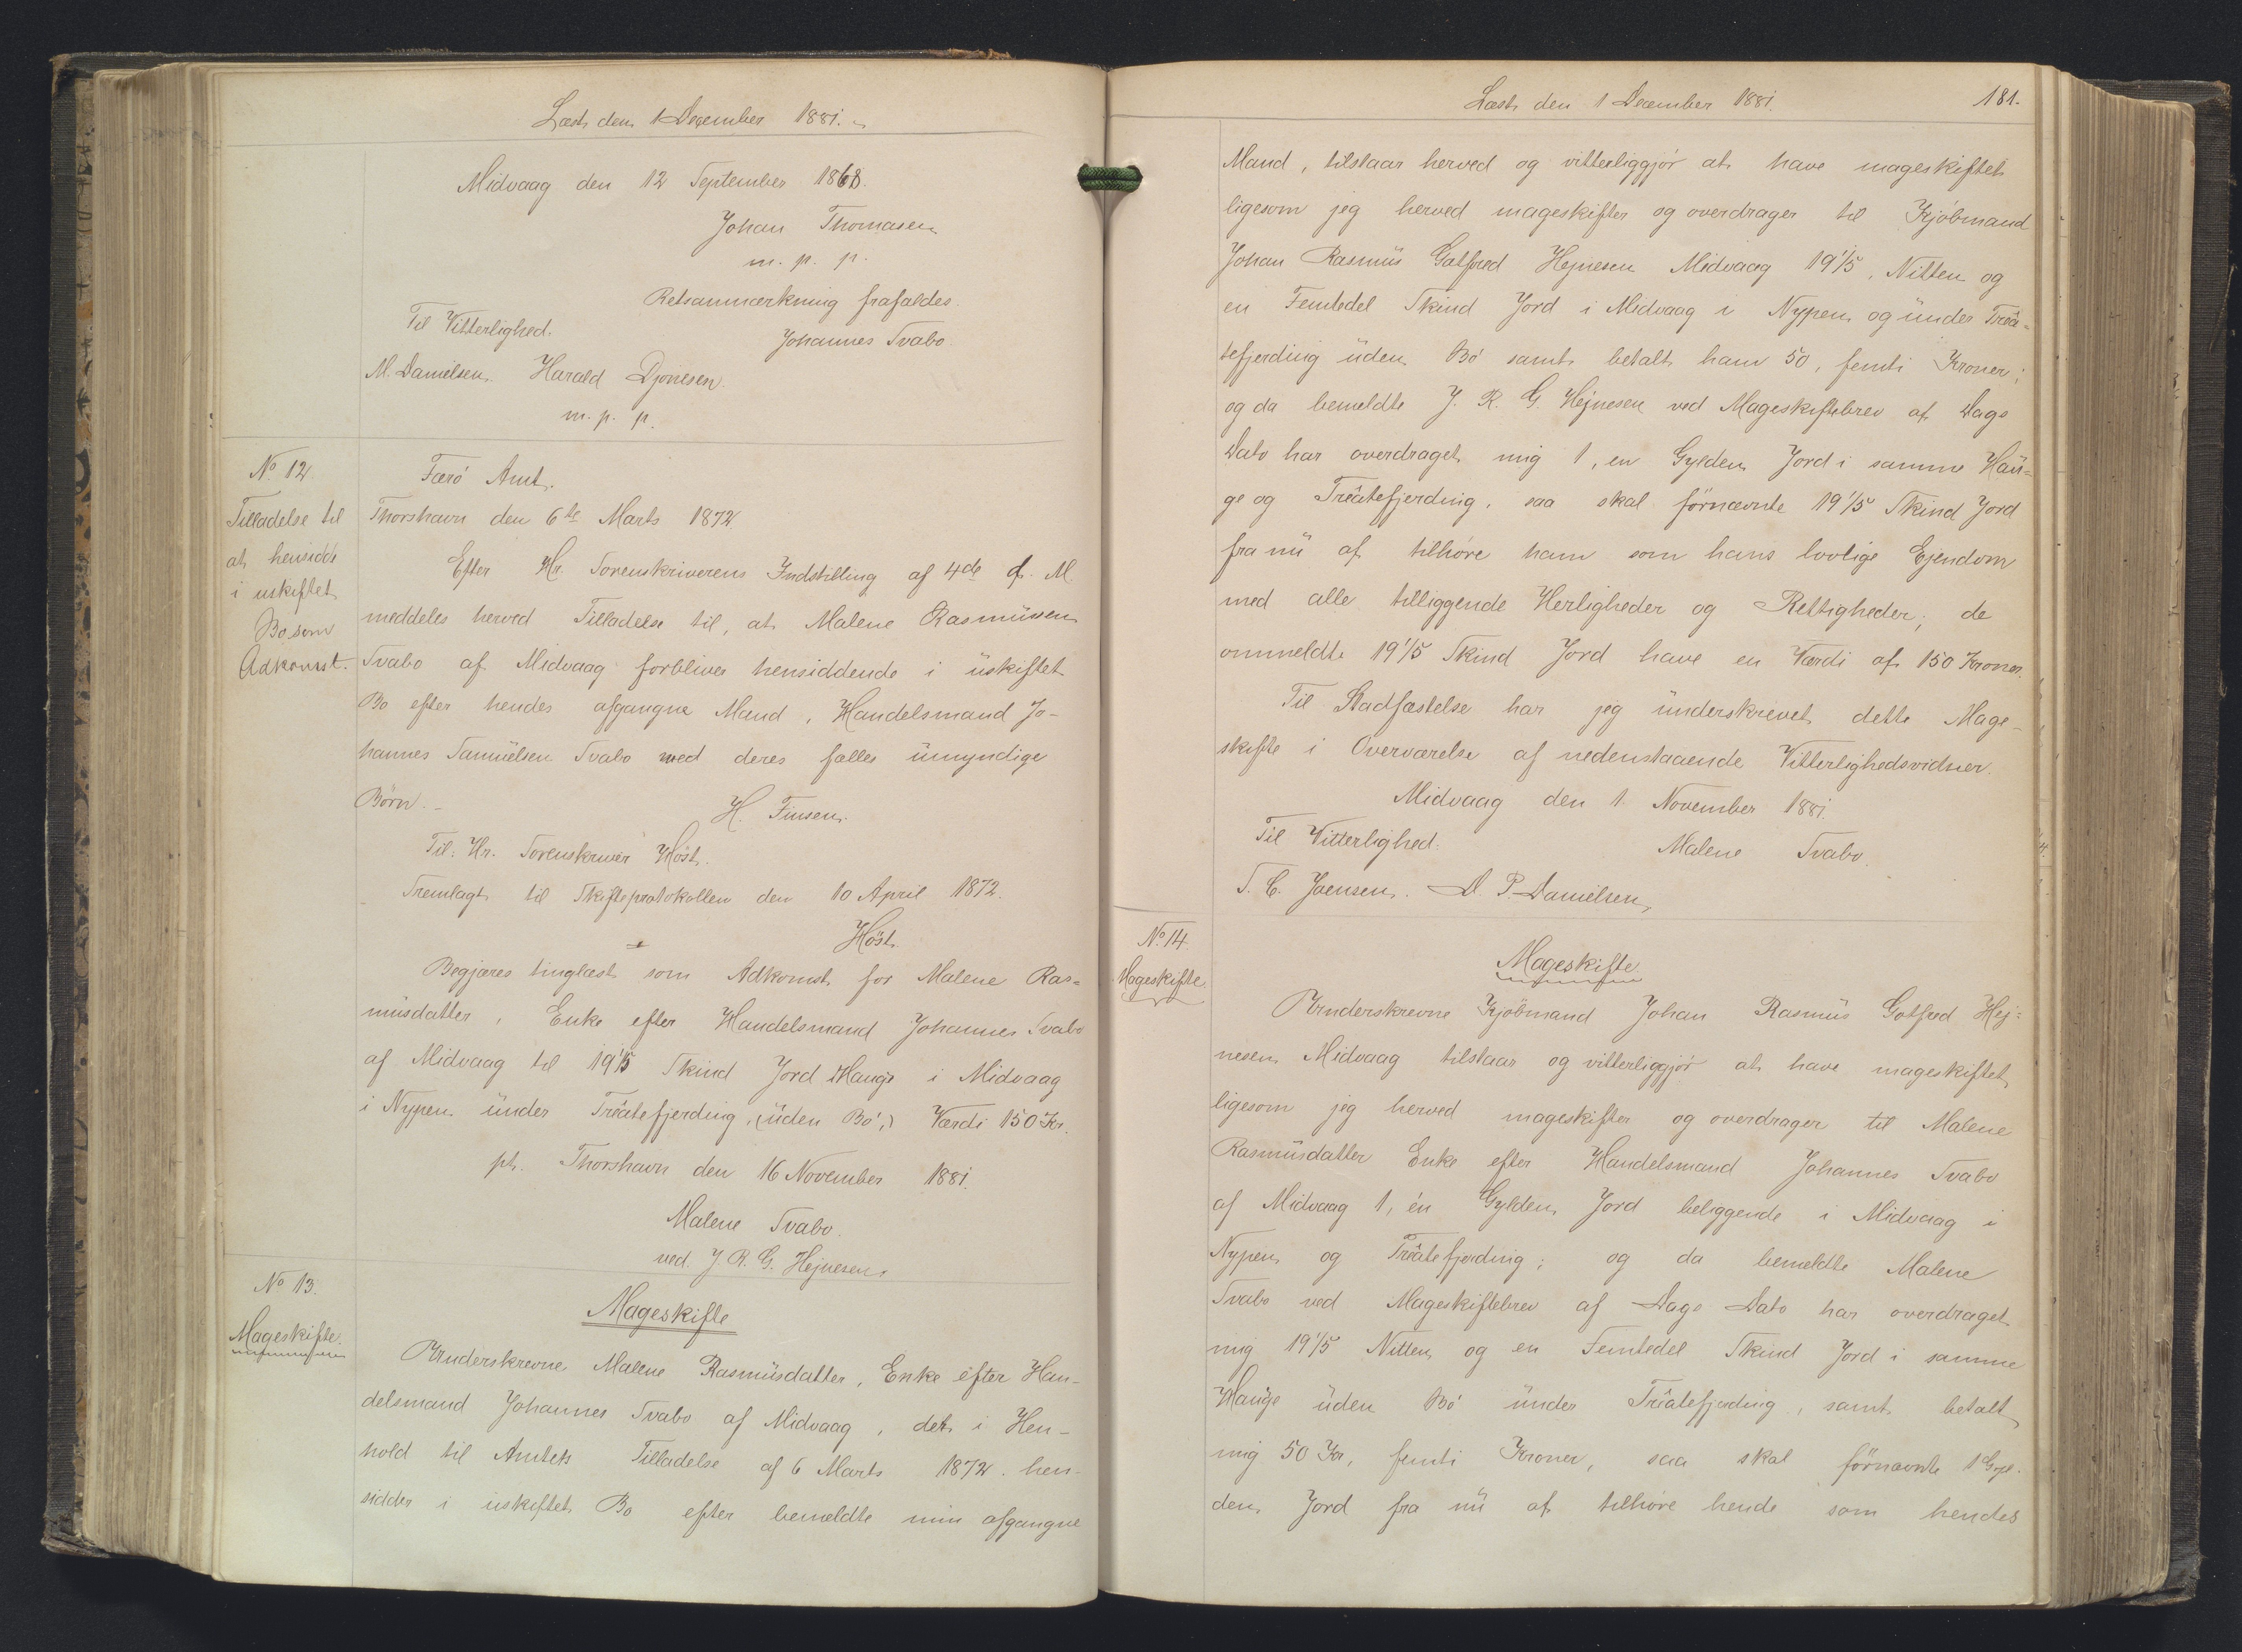 Læst den 1 December 1881.
Midvaag den 12 September 1868.
Johan Thomasen
m. p. p.
Retsanmærkning frafaldes.
Til Vitterlighed.
Johannes Svabo.
M. Danielsen. Harald Djonesen
m. p. p.
No 12.
Tilladelse til
at hensidde
i uskiftet
Bo som
Adkomst.
Færø Amt.
Thorshavn den 6te Marts 1872
Efter Hr. Sorenskriverens Indstilling af 4de d. M.
meddeles herved Tilladelse til, at Malene Rasmussen
Svabo af Midvaag forbliver hensiddende i uskiftet
Bo efter hendes afgangne Mand, Handelsmand Jo-
hannes Samuelsen Svabo med deres fælles umyndige
Børn. -
H. Finsen.
Til: Hr. Sorenskriver Høst.
Fremlagt til Skifteprotokollen den 10 April 1872.
Høst.
Begjæres tinglæst som Adkomst for Malene Ras=
musdatter, Enke efter Handelsmand Johannes Svabo
af Midvaag til 19 1/5 Skind Jord Hauge i Midvaag
i Nypen under Trøatefjerding, (uden Bø,) Værdi 150 Kr.
pt. Thorshavn den 16 November 1881.
Malene Svabo.
ved. J. R. G. Hejnesen
No 13.
Mageskifte.
Mageskifte
Underskrevne Malene Rasmusdatter, Enke efter Han-
delsmand Johannes Svabo af Midvaag, det i Hen-
hold til Amtets Tilladelse af 6 Marts 1872. hen-
sidder i uskiftet Bo efter bemeldte min afgangne
Læst den 1 December 1881.
181.
Mand, tilstaar herved og vitterliggjør at have mageskiftet
ligesom jeg herved mageskifter og overdrager til Kjøbmand
Johan Rasmus Gotfred Hejnesen Midvaag 19 1/5, Nitten og
en Femtedel Skind Jord i Midvaag i Nypen og under Trøa-
tefjerding uden Bø samt betalt ham 50, femti Kroner;
og da bemeldte J. R. G. Hejnesen ved Mageskiftebrev af Dags
Dato har overdraget mig 1, en Gylden Jord i samme Hau=
ge og Trøatefjerding, saa skal førnævnte 19 1/5 Skind Jord
fra nu af tilhøre ham som hans lovlige Ejendom
med alle tilliggende Herligheder og Rettigheder; de
ommeldte 19 1/5 Skind Jord have en Værdi af 150 Kroner.
Til Stadfæstelse har jeg underskrevet dette Mage-
skifte i Overværelse af nedenstaaende Vitterlighedsvidner.
Midvaag den 1. November 1881.
Til Vitterlighed.
Malene Svabo.
S. C. Joensen. D. P. Danielsen.
No 14.
Mageskifte.
Mageskifte
Underskrevne Kjøbmand Johan Rasmus Gotfred Hej=
nesen Midvaag tilstaar og vitterliggjør at have mageskiftet
ligesom jeg herved mageskifter og overdrager til Malene
Rasmusdatter Enke efter Handelsmand Johannes Svabo
af Midvaag 1, én Gylden Jord beliggende i Midvaag i
Nypen og Trøatefjerding; og da bemeldte Malene
Svabo ved Mageskiftebrev af Dags Dato har overdraget
mig 19 1/5 Nitten og en Femtedel Skind Jord i samme
Hauge uden Bø under Trøatefjerding, samt betalt
mig 50 Kr, femti Kroner, saa skal førnævnte 1 Gyl-
den Jord fra nu af tilhøre hende som hendes